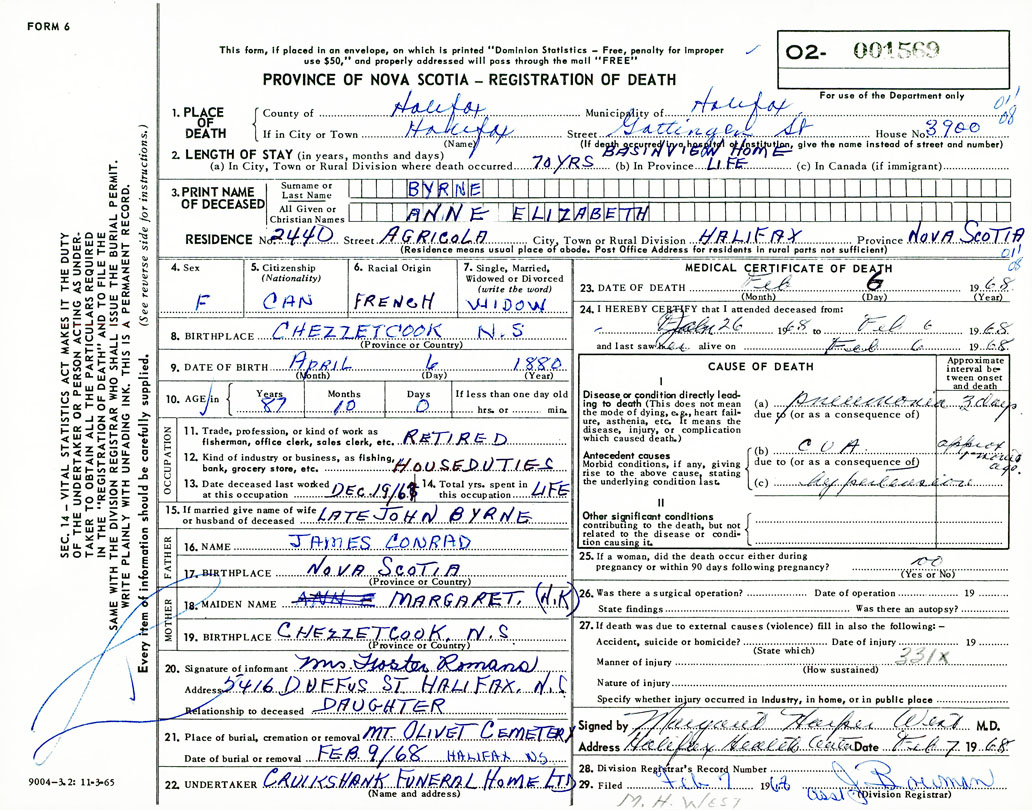 FORM 6
This form, if placed in an envelope, on which is printed "Dominion Statistics – Free, penalty for improper
use $50," and properly addressed will pass through the mail "FREE"
PROVINCE OF NOVA SCOTIA – REGISTRATION OF DEATH
02- 001569
For use of the Department only
011
08
1. PLACE OF DEATH
County of Halifax Municipality of Halifax
If in City or Town Halifax Street Gottingen St House No. 3900
(Name) (If death occurred in a hospital or institution, give the name instead of street and number)
BASINVIEW HOME
2. LENGTH OF STAY (in years, months and days)
(a) In City, Town or Rural Division where death occurred 70 YRS (b) In Province LIFE (c) In Canada (if immigrant)
3. PRINT NAME OF DECEASED
Surname or Last Name BYRNE
All Given or Christian Names ANNE ELIZABETH
RESIDENCE No. 2440 Street AGRICOLA City, Town or Rural Division HALIFAX Province NOVA SCOTIA
(Residence means usual place of abode. Post Office Address for residents in rural parts not sufficient)
011
08
4. Sex F
5. Citizenship (Nationality) CAN
6. Racial Origin FRENCH
7. Single, Married, Widowed or Divorced (write the word) WIDOW
8. BIRTHPLACE CHEZZETCOOK N.S
(Province or Country)
9. DATE OF BIRTH APRIL 6 1880
(Month) (Day) (Year)
10. AGE in Years 87 Months 10 Days 0 If less than one day old hrs. or min.
OCCUPATION
11. Trade, profession, or kind of work as
fisherman, office clerk, sales clerk, etc. RETIRED
12. Kind of industry or business, as fishing,
bank, grocery store, etc. HOUSEDUTIES
13. Date deceased last worked at this occupation DEC. 19/67 14. Total yrs. spent in this occupation LIFE
15. If married give name of wife
or husband of deceased LATE JOHN BYRNE
FATHER
16. NAME JAMES CONRAD
17. BIRTHPLACE NOVA SCOTIA
(Province or Country)
MOTHER
18. MAIDEN NAME ANN E MARGARET. (N.K)
19. BIRTHPLACE CHEZZETCOOK, N.S
(Province or Country)
20. Signature of informant Mrs. Foster Romans
Address 5416 DUFFUS ST. HALIFAX, N.S
Relationship to deceased DAUGHTER
21. Place of burial, cremation or removal MT. OLIVET CEMETERY
Date of burial or removal FEB. 9/68 HALIFAX NS
22. UNDERTAKER CRUIKSHANK FUNERAL HOME LTD
(Name and address)
MEDICAL CERTIFICATE OF DEATH
23. DATE OF DEATH Feb 6 1968
(Month) (Day) (Year)
24. I HEREBY CERTIFY that I attended deceased from:
Jan 26 1968 to Feb 6 1968
and last saw her alive on Feb 6 1968
CAUSE OF DEATH
Approximate interval between onset and death
I
Disease or condition directly leading to death (This does not mean the mode of dying, e.g., heart failure, asthenia, etc. It means the disease, injury, or complication which caused death.)
(a) Pneumonia 3 days
due to (or as a consequence of)
Antecedent causes
Morbid conditions, if any, giving rise to the above cause, stating the underlying condition last.
(b) CVA approx
due to (or as a consequence of) ago.
(c) hypertension
II
Other significant conditions
contributing to the death, but not related to the disease or condition causing it.
25. If a woman, did the death occur either during
pregnancy or within 90 days following pregnancy? no
(Yes or No)
26. Was there a surgical operation? Date of operation 19
State findings Was there an autopsy?
27. If death was due to external causes (violence) fill in also the following: –
Accident, suicide or homicide? Date of injury 19
(State which)
Manner of injury 331x
(How sustained)
Nature of injury
Specify whether injury occurred in industry, in home, or in public place
Signed by Margaret Harper West M.D.
Address Halifax Health Center Date Feb 7 1968
28. Division Registrar's Record Number
29. Filed Feb 7 1968 J. Bowman
asst (Division Registrar)
M. H. WEST
SEC. 14 – VITAL STATISTICS ACT MAKES IT THE DUTY
OF THE UNDERTAKER OR PERSON ACTING AS UNDER-
TAKER TO OBTAIN ALL THE PARTICULARS REQUIRED
IN THE "REGISTRATION OF DEATH" AND TO FILE THE
SAME WITH THE DIVISION REGISTRAR WHO SHALL ISSUE THE BURIAL PERMIT.
WRITE PLAINLY WITH UNFADING INK. THIS IS A PERMANENT RECORD.
Every item of information should be carefully supplied. (See reverse side for instructions.)
9004–3.2: 11-3-65